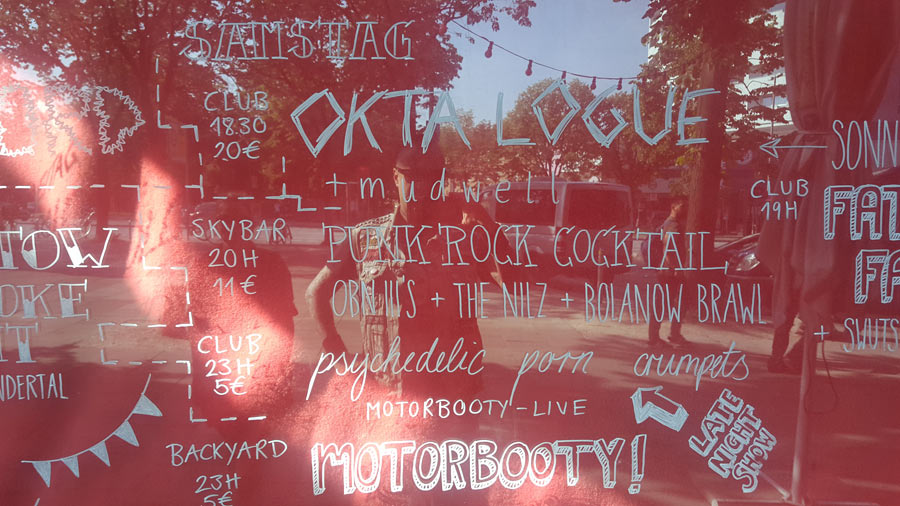 SAMSTAG
CLUB
18.30
20€
OKTA LOGUE
+ mudwell
SKYBAR
20H
11€
PUNK ROCK COCKTAIL
OBNIIS + THE NILZ + BOLANOW BRAWL
CLUB
23H
5€
psychedelic porn crumpets
MOTORBOOTY-LIVE
LATE
NIGHT
SHOW
BACKYARD
23H
5€
MOTORBOOTY!
TOW
OKE
IT
NDERTAL
SONN
CLUB
19H
FAT
FA
+ SWUTS